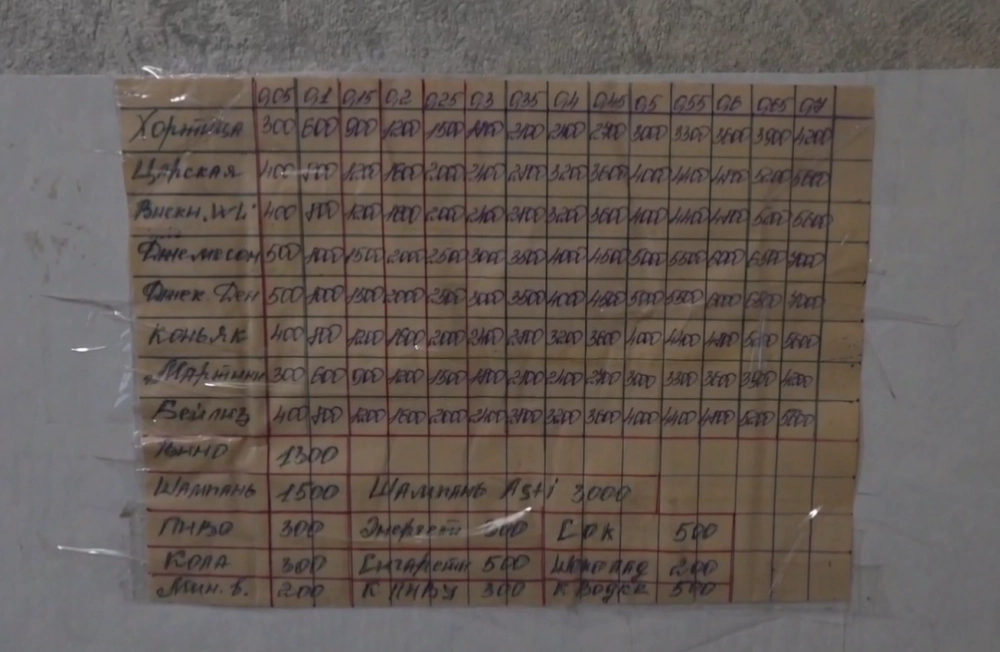 0,05 0,1 0,15 0,2 0,25 0,3 0,35 0,4 0,45 0,5 0,55 0,6 0,65 0,7
Хортица 300 600 900 1200 1500 1800 2100 2400 2700 3000 3300 3600 3900 4200
Царская 400 800 1200 1600 2000 2400 2800 3200 3600 4000 4400 4800 5200 5600
Виски, WL 400 800 1200 1600 2000 2400 2800 3200 3600 4000 4400 4800 5200 5600
Джемосон 500 1000 1500 2000 2500 3000 3500 4000 4500 5000 5500 6000 6500 7000
Джек Ден 500 1000 1500 2000 2500 3000 3500 4000 4500 5000 5500 6000 6500 7000
Коньяк 400 800 1200 1600 2000 2400 2800 3200 3600 4000 4400 4800 5200 5600
Мартини 300 600 900 1200 1500 1800 2100 2400 2700 3000 3300 3600 3900 4200
Бейлиз 400 800 1200 1600 2000 2400 2800 3200 3600 4000 4400 4800 5200 5600
Вино 1300
Шампань 1500 Шампань Asti 3000
Пиво 300 Сок 500
Кола 300 Сигареты 500 Шоколад 200
Мин. в. 200 К пиву 300 К водке 500